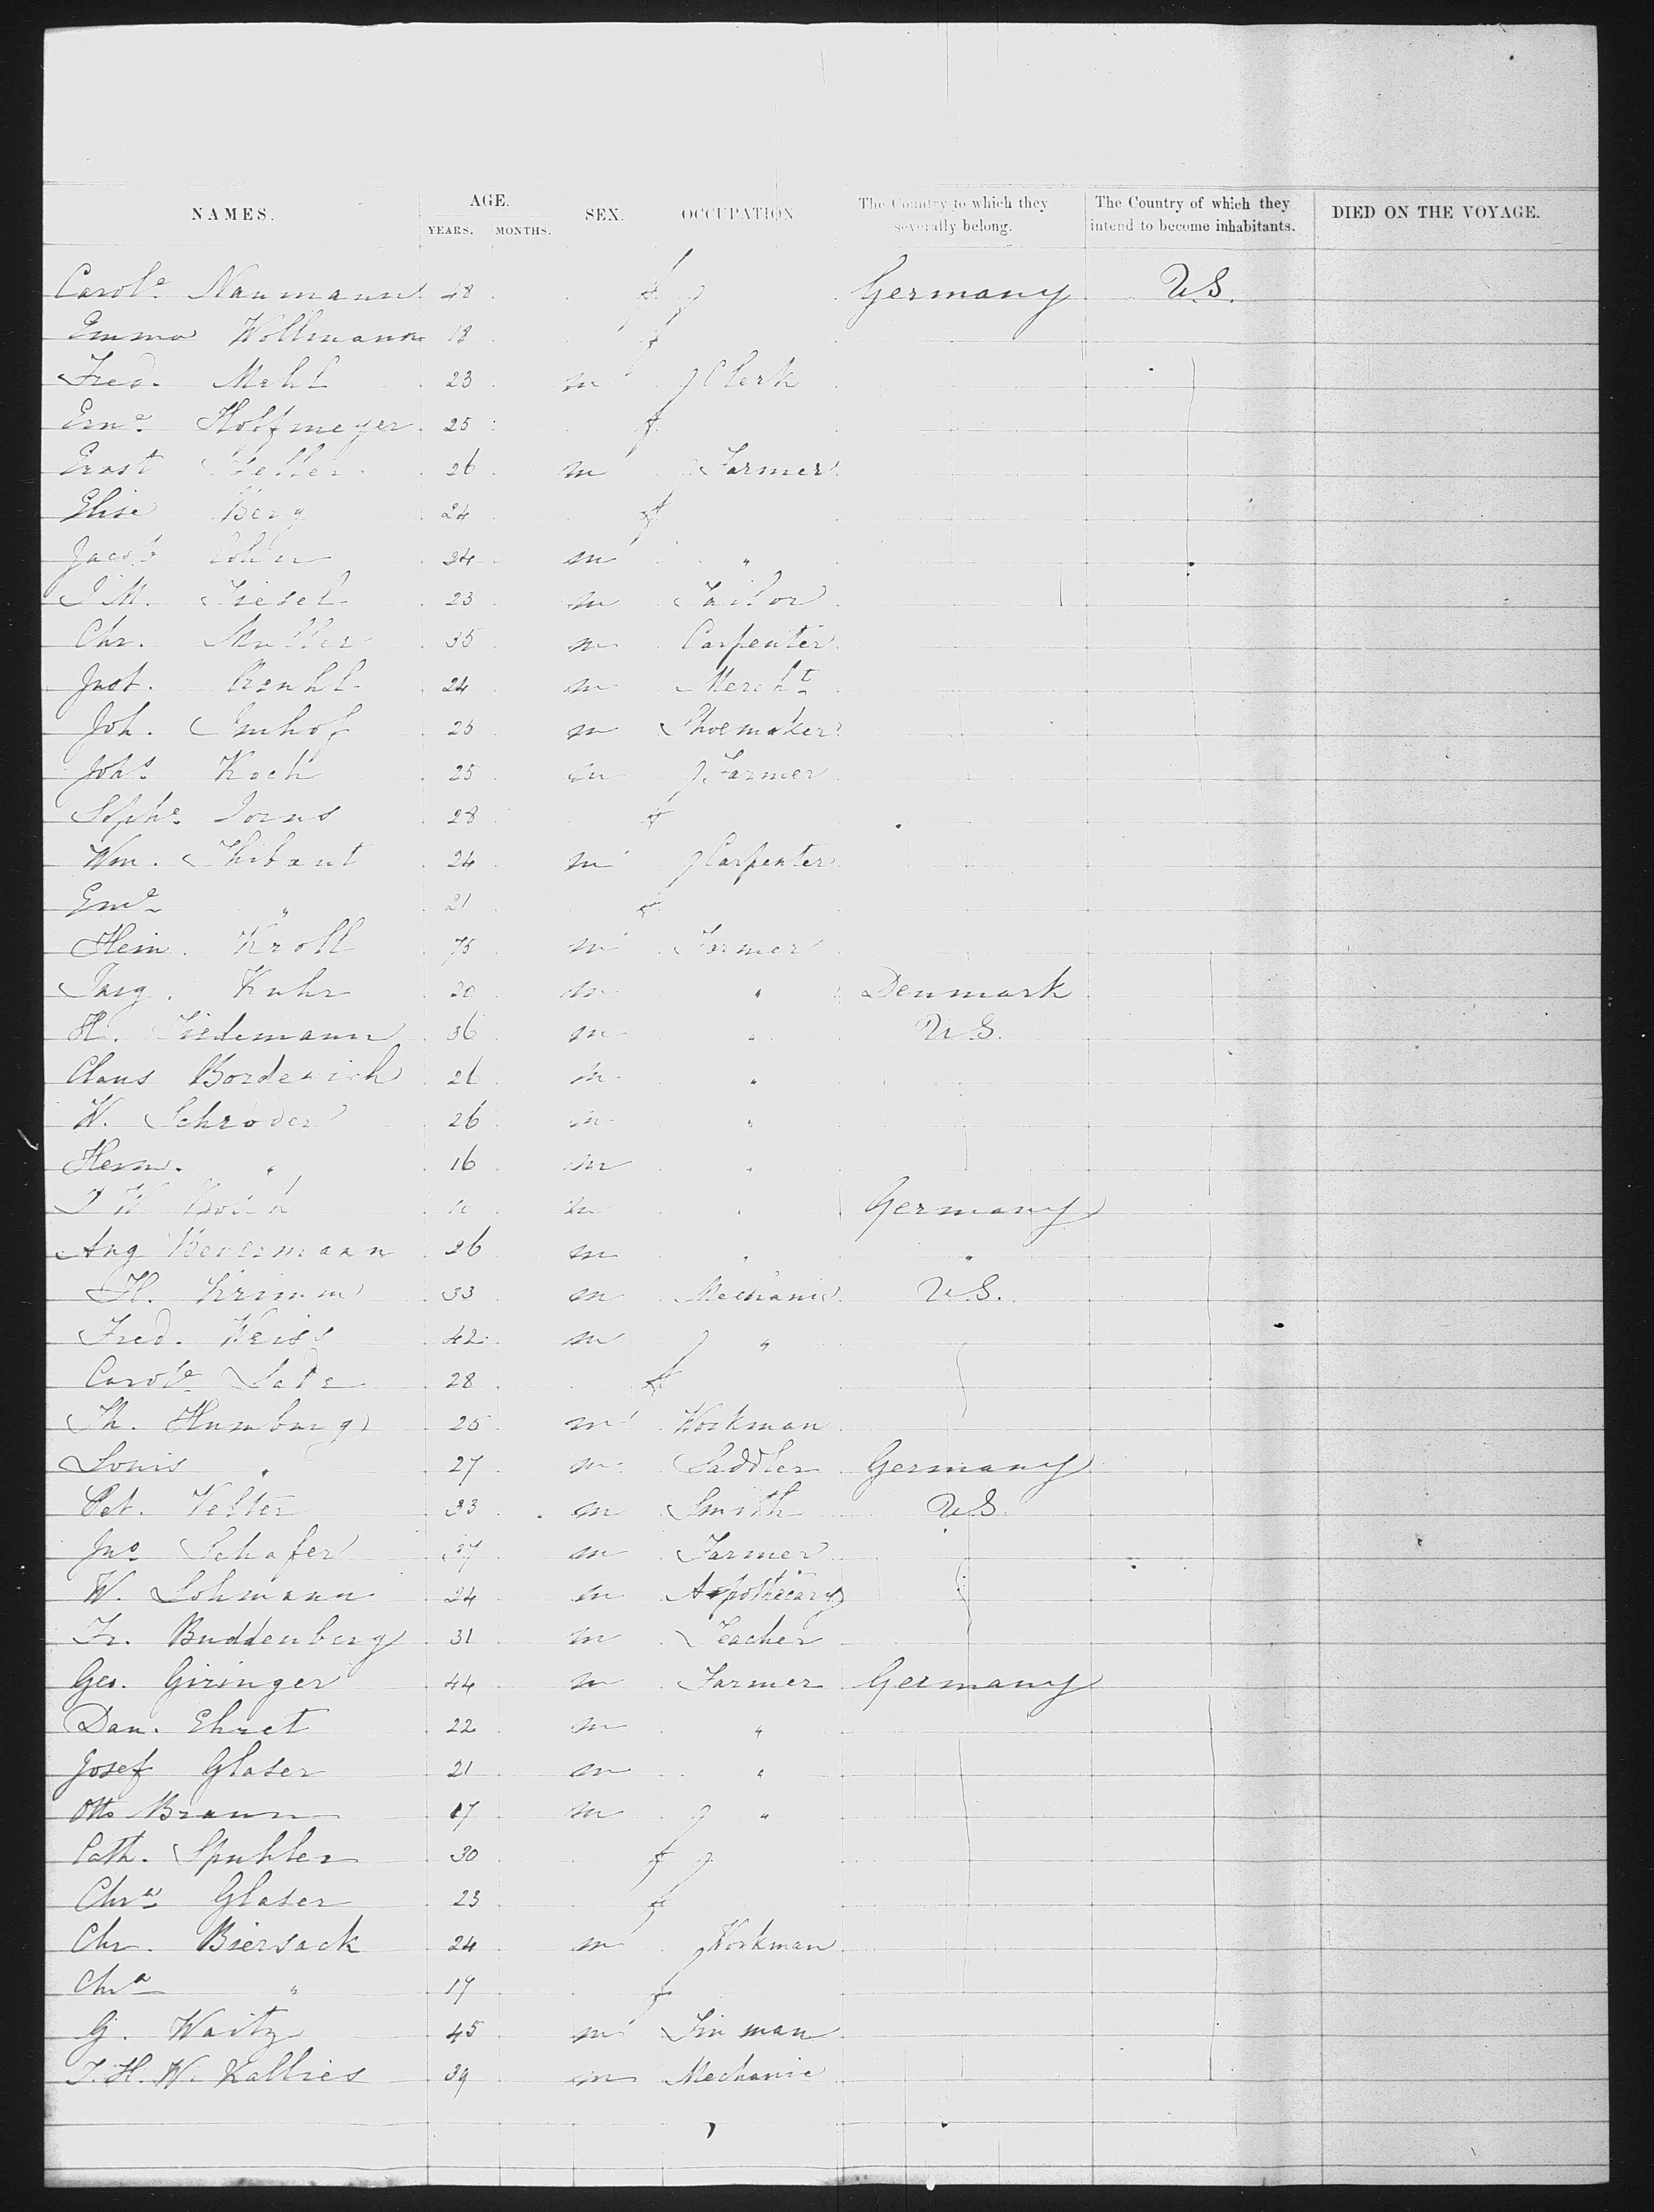 NAMES. AGE. YEARS. MONTHS. SEX. OCCUPATION The Country to which they severally belong. The Country of which they intend to become inhabitants. DIED ON THE VOYAGE.
Carole Naumann 48 f Germany U.S.
Emma Wollmann 18 f
Fred. Mehl 23 m Clerk
Erne Hoffmeyer 25 f
Ernst 26 m Farmer
Elise Berg 24 f
Jacob Cohen 24 m "
J M. Tiesel 23 m Tailor
Chr. Muller 35 m Carpenter
Just. 24 m Mercht
Joh. Imhof 25 m Shoemaker
Johs Koch 25 m Farmer
Sophe Jorns 28 f
Wm. Thibaut 24 m Carpenter
" 21 f
Hein. Kroll 75 m Farmer
Kuhr 20 m " Denmark
H. Tiedemann 36 m " U.S.
Claus 26 m "
W. Schroder 26 m "
Herm. " 16 m "
m " Germany
Aug 26 m " "
H. Krimm 33 m Mechanic U.S.
Fred. Weiss 42 m "
Carole 28 f
Th. Humburg 25 m Workman
Louis " 27 m Saddler Germany
Pet. Velter 33 m Smith U.S.
Jno Schafer 37 m Farmer
W. Lohmann 24 m Apothecary
Fr. Buddenberg 31 m Teacher
Geo. Giringer 44 m Farmer Germany
Dan. Ehret 22 m "
Josef Glaser 21 m "
Otto Braun 17 m "
Cath. Spuhler 30 f
Chra Glaser 23 f
Chr. Biersack 24 m Workman
Chra " 17 f
G. Waitz 45 m Tin man
J. H. W. Kallies 39 m Mechanic